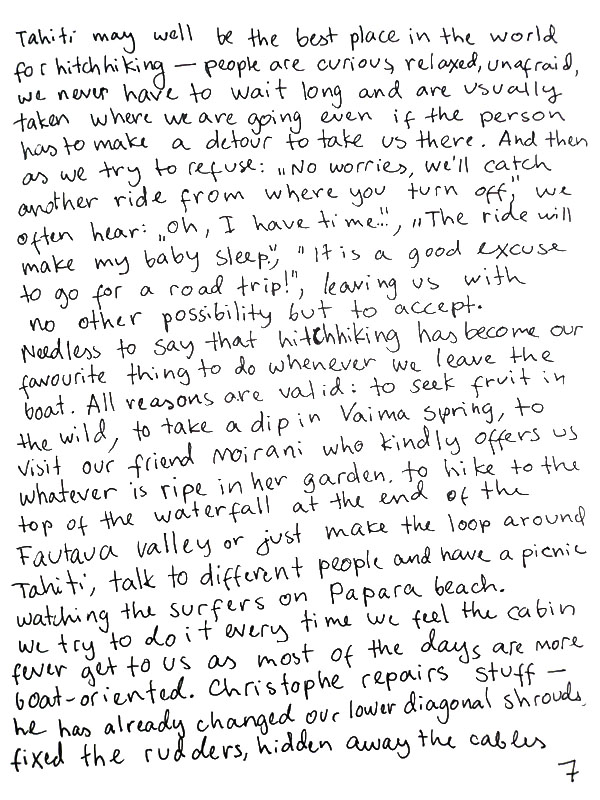 Tahiti may well be the best place in the world
for hitchhiking — people are curious, relaxed, unafraid,
we never have to wait long and are usually
taken where we are going even if the person
has to make a detour to take us there. And then
as we try to refuse: „No worries, we'll catch
another ride from where you turn off," we
often hear: „Oh, I have time!", „The ride will
make my baby sleep", "It is a good excuse
to go for a road trip!", leaving us with
no other possibility but to accept.
Needless to say that hitchhiking has become our
favourite thing to do whenever we leave the
boat. All reasons are valid: to seek fruit in
the wild, to take a dip in Vaima Spring, to
visit our friend Moirani who kindly offers us
whatever is ripe in her garden. to hike to the
top of the waterfall at the end of the
Fautaua valley or just make the loop around
Tahiti, talk to different people and have a picnic
watching the surfers on Papara beach.
We try to do it every time we feel the cabin
fever get to us as most of the days are more
boat-oriented. Christophe repairs stuff —
he has already changed our lower diagonal shrouds,
fixed the rudders, hidden away the cables
7